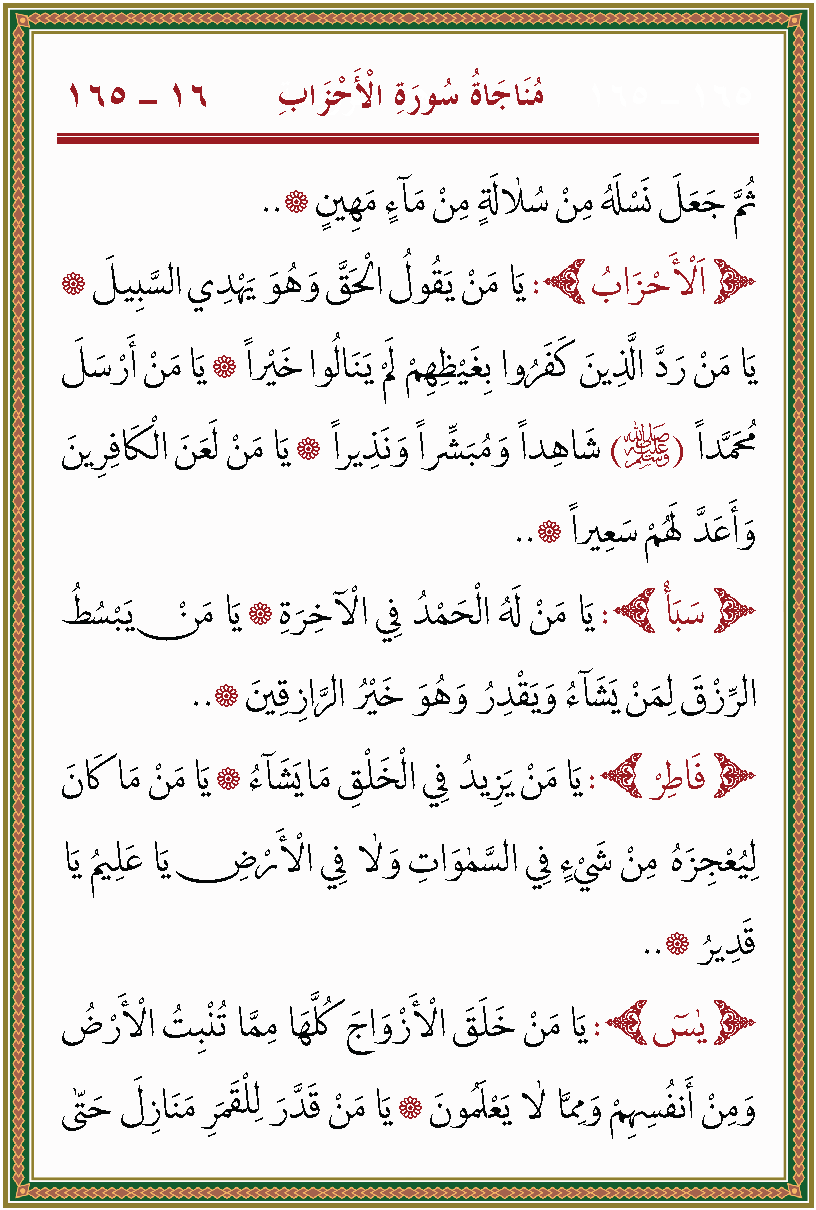 مُنَاجَاةُ سُورَةِ الْأَحْزَابِ ١٦ - ١٦٥
ثُمَّ جَعَلَ نَسْلَهُ مِنْ سُلَالَةٍ مِنْ مَآءٍ مَهِينٍ ۞..
﴿ اَلْأَحْزَابُ ﴾: يَا مَنْ يَقُولُ الْحَقَّ وَهُوَ يَهْدِي السَّبِيلَ ۞
يَا مَنْ رَدَّ الَّذِينَ كَفَرُوا بِغَيْظِهِمْ لَمْ يَنَالُوا خَيْراً ۞ يَا مَنْ أَرْسَلَ
مُحَمَّداً (ﷺ) شَاهِداً وَمُبَشِّراً وَنَذِيراً ۞ يَا مَنْ لَعَنَ الْكَافِرِينَ
وَأَعَدَّ لَهُمْ سَعِيراً ۞..
﴿ سَبَأْ ﴾: يَا مَنْ لَهُ الْحَمْدُ فِي الْآخِرَةِ ۞ يَا مَنْ يَبْسُطُ
الرِّزْقَ لِمَنْ يَشَآءُ وَيَقْدِرُ وَهُوَ خَيْرُ الرَّازِقِينَ ۞..
﴿ فَاطِرْ ﴾: يَا مَنْ يَزِيدُ فِي الْخَلْقِ مَا يَشَآءُ ۞ يَا مَنْ مَا كَانَ
لِيُعْجِزَهُ مِنْ شَيْءٍ فِي السَّمٰوَاتِ وَلَا فِي الْأَرْضِ يَا عَلِيمُ يَا
قَدِيرُ ۞..
﴿ يٰسٓ ﴾: يَا مَنْ خَلَقَ الْأَزْوَاجَ كُلَّهَا مِمَّا تُنْبِتُ الْأَرْضُ
وَمِنْ أَنفُسِهِمْ وَمِمَّا لَا يَعْلَمُونَ ۞ يَا مَنْ قَدَّرَ لِلْقَمَرِ مَنَازِلَ حَتّٰى